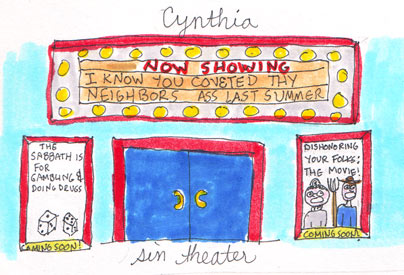 Cynthia
NOW SHOWING
I KNOW YOU COVETED THY
NEIGHBORS ASS LAST SUMMER
THE
SABBATH IS
FOR
GAMBLING &
DOING DRUGS
COMING SOON!
DISHONORING
YOUR FOLKS:
THE MOVIE!
COMING SOON!
sin theater